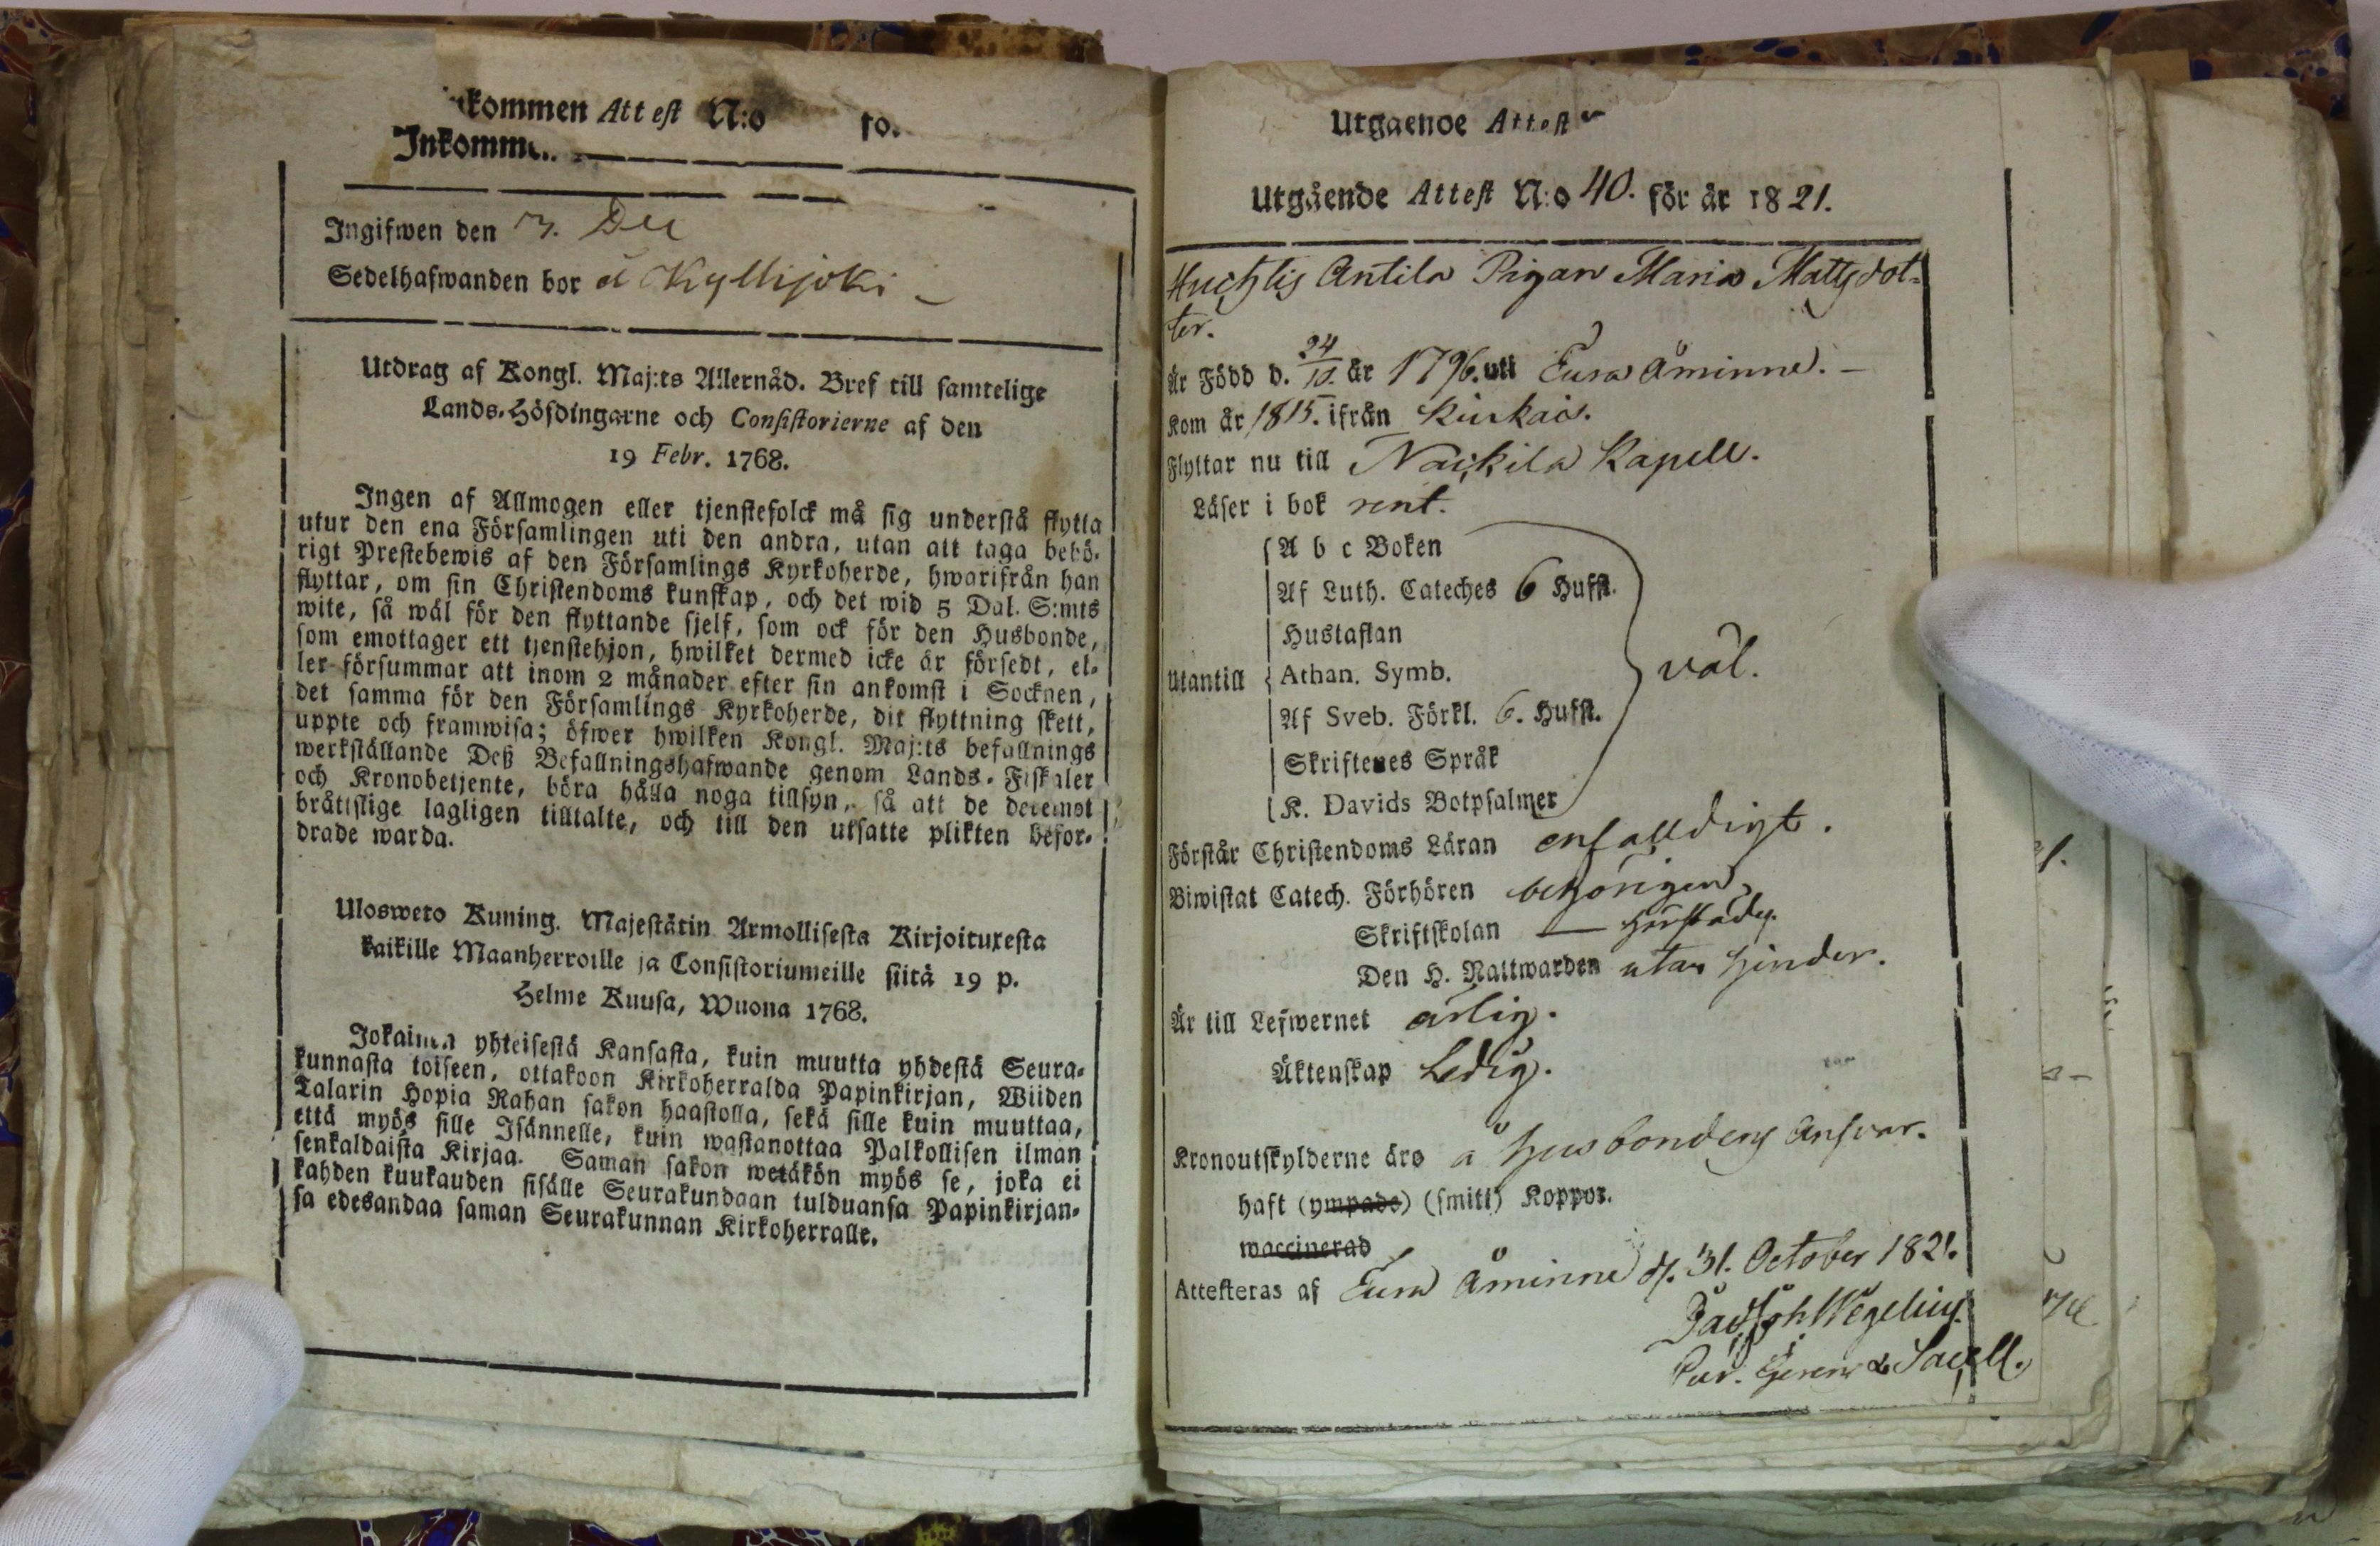 kommen Attest N:o fö.
Inkomm
Ingifwen den 3. Dec
Sedelhafwanden bor å Kyllijoki –
Utdrag af Kongl. Maj:ts Allernåd. Bref till samtelige
Lands-Höfdingarne och Consistorierne af den
19 Febr. 1768.
Ingen af Allmogen eller tjenstefolck må sig understå flytta
utur den ena Församlingen uti den andra, utan att taga behö-
rigt Prestebewis af den Församlings Kyrkoherde, hwarifrån han
flyttar, om sin Christendoms kunskap, och det wid 5 Dal. S:mts
wite, så wäl för den flyttande sjelf, som ock för den Husbonde,
som emottager ett tjenstehjon, hwilket dermed icke är försedt, el-
ler försummar att inom 2 månader efter sin ankomst i Socknen,
det samma för den Församlings Kyrkoherde, dit flyttning skett,
uppte och framwisa; öfwer hwilken Kongl. Maj:ts befallnings
werkställande Deß Befallningshafwande genom Lands-Fiskaler
och Kronobetjente, böra hålla noga tillsyn, så att de deremot
bråttslige lagligen tilltalte, och till den utsatte plikten befor-
drade warda.
Ulosweto Kuning. Majestätin Armollisesta Kirjoituxesta
kaikille Maanherroille ja Consistoriumeille siitä 19 p.
Helme Kuusa, Wuona 1768.
Jokainen yhteisestä Kansasta, kuin muutta yhdestä Seura-
kunnasta toiseen, ottakoon Kirkoherralda Papinkirjan, Wiiden
Talarin Hopia Rahan sakon haastolla, sekä sille kuin muuttaa,
että myös sille Isännelle, kuin wastanottaa Palkollisen ilman
senkaldaista Kirjaa. Saman sakon wetäkön myös se, joka ei
kahden kuukauden sisälle Seurakundaan tulduansa Papinkirjan-
sa edesandaa saman Seurakunnan Kirkoherralle.
Utgaende Attest
Utgående Attest N:o 40. för år 1821.
Huchtis Antila Pigan Maria Mattsdot-
ter.
Är Född d. 24/10. år 1796. uti Eura Åminne. –
Kom år 1815. ifrån Kiukais.
Flyttar nu till Nackila Kapell.
Läser i bok rent.
A b c Boken
Af Luth. Cateches 6 Hufst.
Hustaflan
Utantill Athan. Symb. väl.
Af Sveb. Förkl. 6. Hufst.
Skriftenes Språk
K. Davids Botpsalmer
Förstår Christendoms Läran enfalldigt.
Biwistat Catech. Förhören behörigen
Skriftskolan —
Den H. Nattwarden utan hinder.
Är till Lefwernet ärlig.
Äktenskap Ledig.
Kronoutskylderne äro å husbondens ansvar.
haft (ympade) (smitt) Koppor.
waccinerad
Attesteras af Eura Åminne d. 31. October 1821.
Wegelius.
& Sacell.